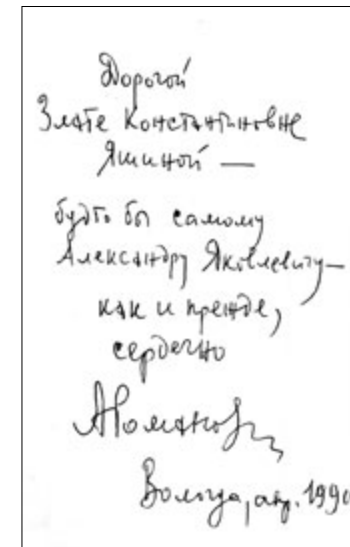 Дорогой
Злате Константиновне
Яшиной —
будто бы самому
Александру Яковлевичу —
как и прежде,
сердечно
АРоманов
Вологда, апр. 1990